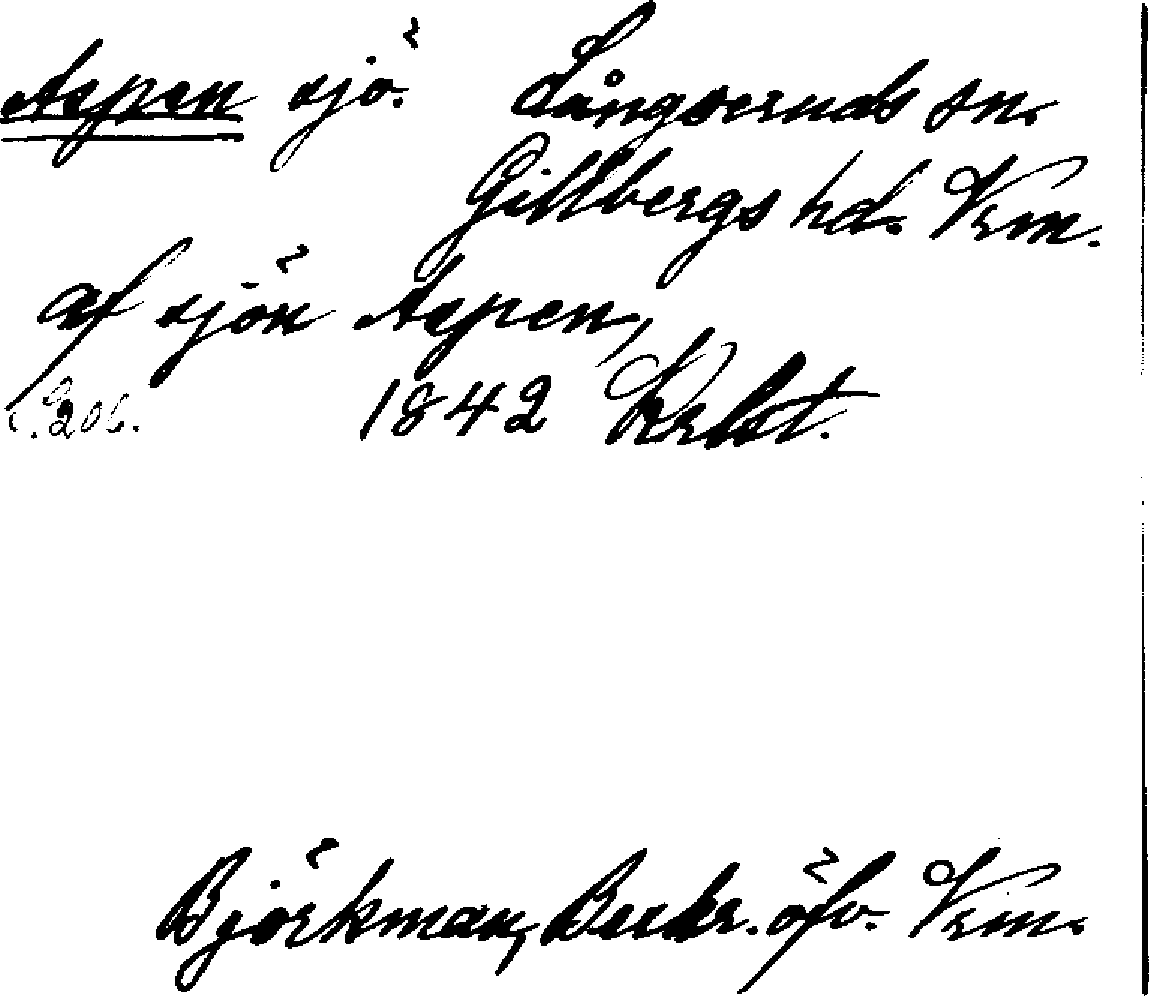 Aspen sjö. Långseruds sn.
Gillbergs hd. Vrm.
af sjön Aspen,
s. 206. 1842 Krlst.
Björkman, Beskr. öfv. Vrm.